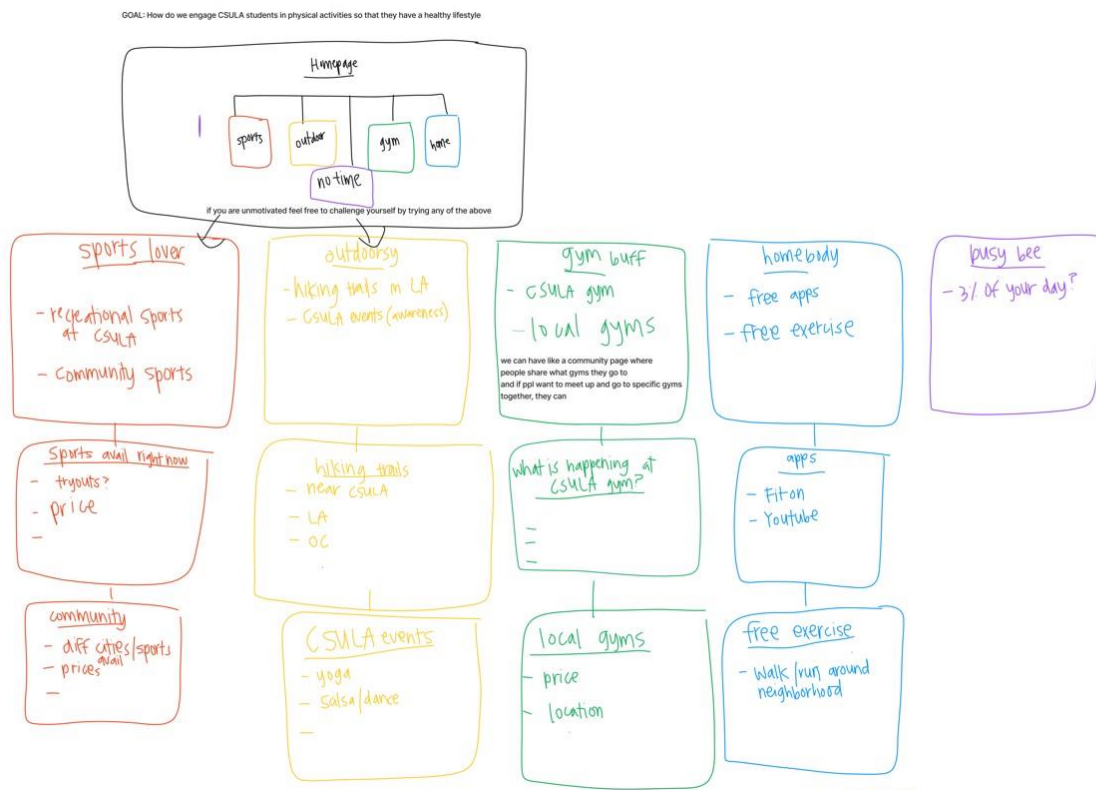 GOAL: How do we engage CSULA students in physical activities so that they have a healthy lifestyle
Homepage
sports
outdoor
gym
home
no time
if you are unmotivated feel free to challenge yourself by trying any of the above
sports lover
- recreational sports
at CSULA
- community sports
sports avail right now
- tryouts?
- price
-
community
- diff cities/sports
avail
- prices
-
outdoorsy
- hiking trails in LA
- CSULA events (awareness)
hiking trails
- near CSULA
- LA
- OC
CSULA events
- yoga
- salsa/dance
-
gym buff
- CSULA gym
- local gyms
we can have like a community page where
people share what gyms they go to
and if ppl want to meet up and go to specific gyms
together, they can
what is happening at
CSULA gym?
-
-
-
local gyms
- price
- location
homebody
- free apps
- free exercise
apps
- Fiton
- Youtube
free exercise
- walk/run around
neighborhood
busy bee
- 3% of your day?